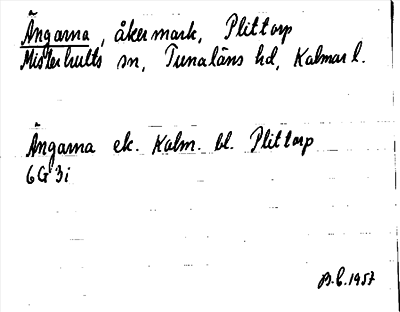 Ängarna, åkermark, Plittorp
Misterhults sn, Tunaläns hd, Kalmar l.
Ängarna ek. Kalm. bl. Plittorp
6G 3i
B.C. 1957